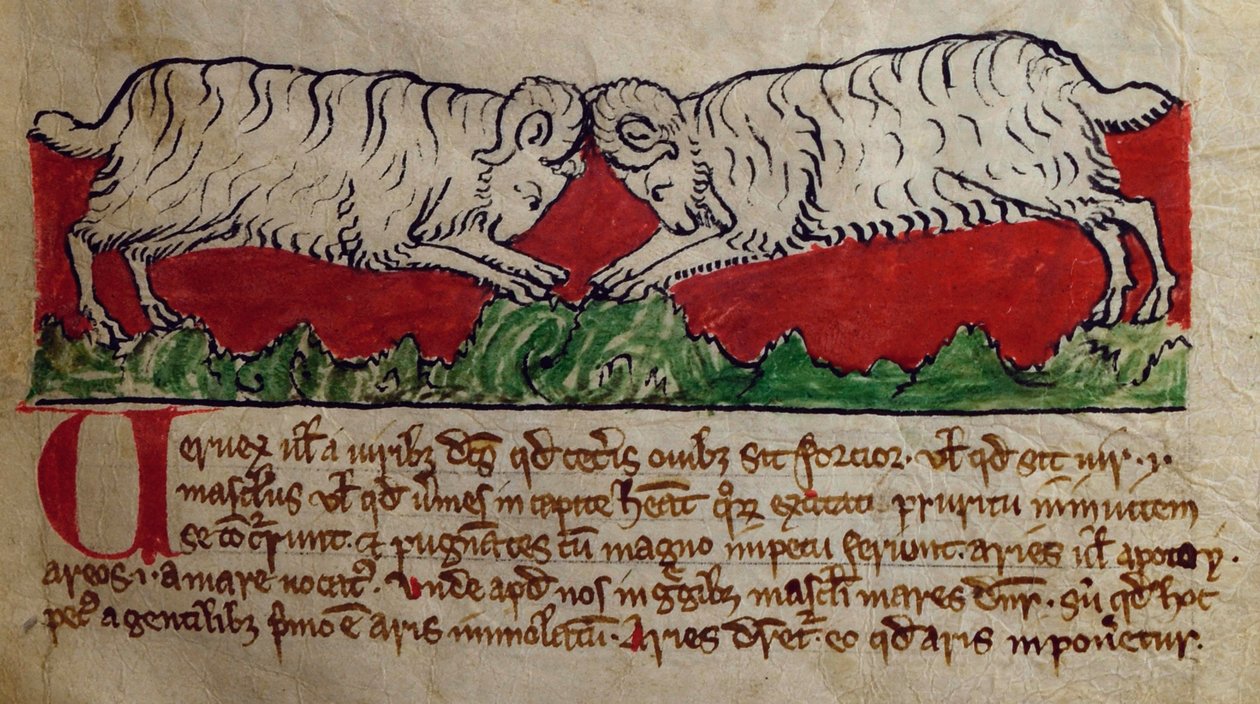 Veruex ul' a uiribz dcs qd ceteris ouibz sit forcior. ul' qd sit uir. i.
masculus ul' qd u'mes in capite h'eat quor' excitati pruritu inuicem
se co'cuciunt. et pugnantes cu' magno impetu feriunt. aries ul' apo toy.
areos. i. a marte uocat'. Vnde apd' nos in g'gibz masculi mares d'nr. siu' qd' hoc
pec' a gentilibz p'mo e' aris immolatu'. Aries d'ret'. eo qd' aris inponeretur.